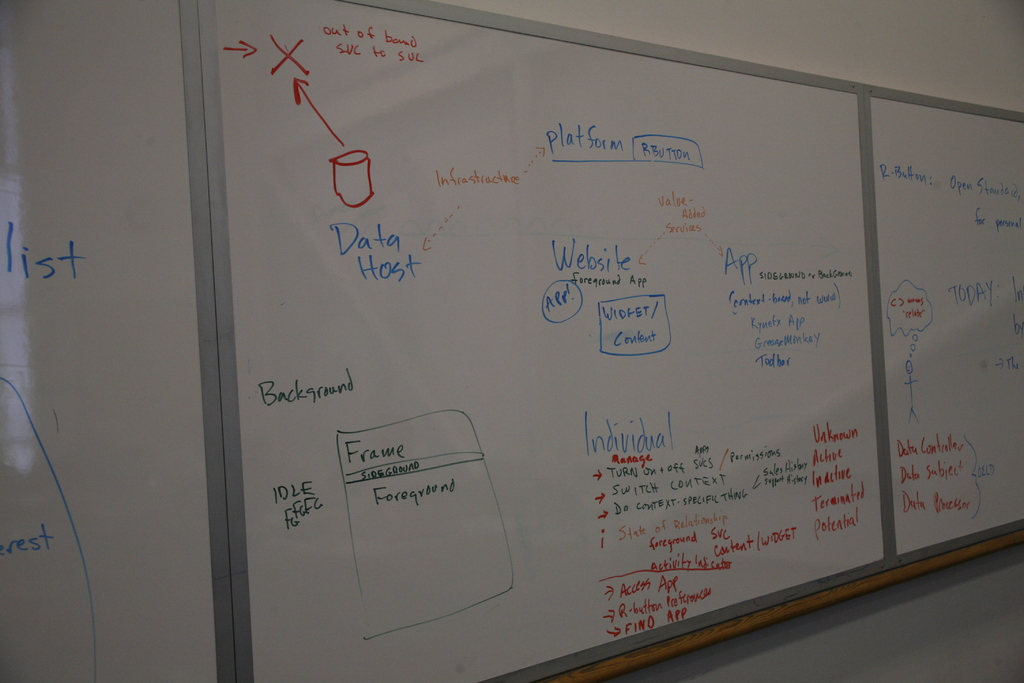 list
erest
out of band
SVC to SVC
platform RBUTTON
Infrastructure
Data
Host
Value-
Added
Services
Website
foreground App
App!
WIDGET/
Content
App SIDEGROUND or Background
(context-based, not www)
Kynetx App
GreaseMonkey
Toolbar
Background
Frame
SIDEGROUND
Foreground
IDLE
FG FG FG
FG
Individual
Manage Apps
→ TURN ON + OFF SVCS / Permissions
→ SWITCH CONTEXT
→ DO CONTEXT-SPECIFIC THING
Sales History
Support History
i State of Relationship
foreground SVC
Content/WIDGET
Activity Indicator
→ Access App
→ R-button Preferences
→ FIND APP
Unknown
Active
Inactive
Terminated
Potential
R-Button: Open Standard,
for personal
TODAY: In
by
→ The
"relate"
Data Controller
Data Subject
Data Processor